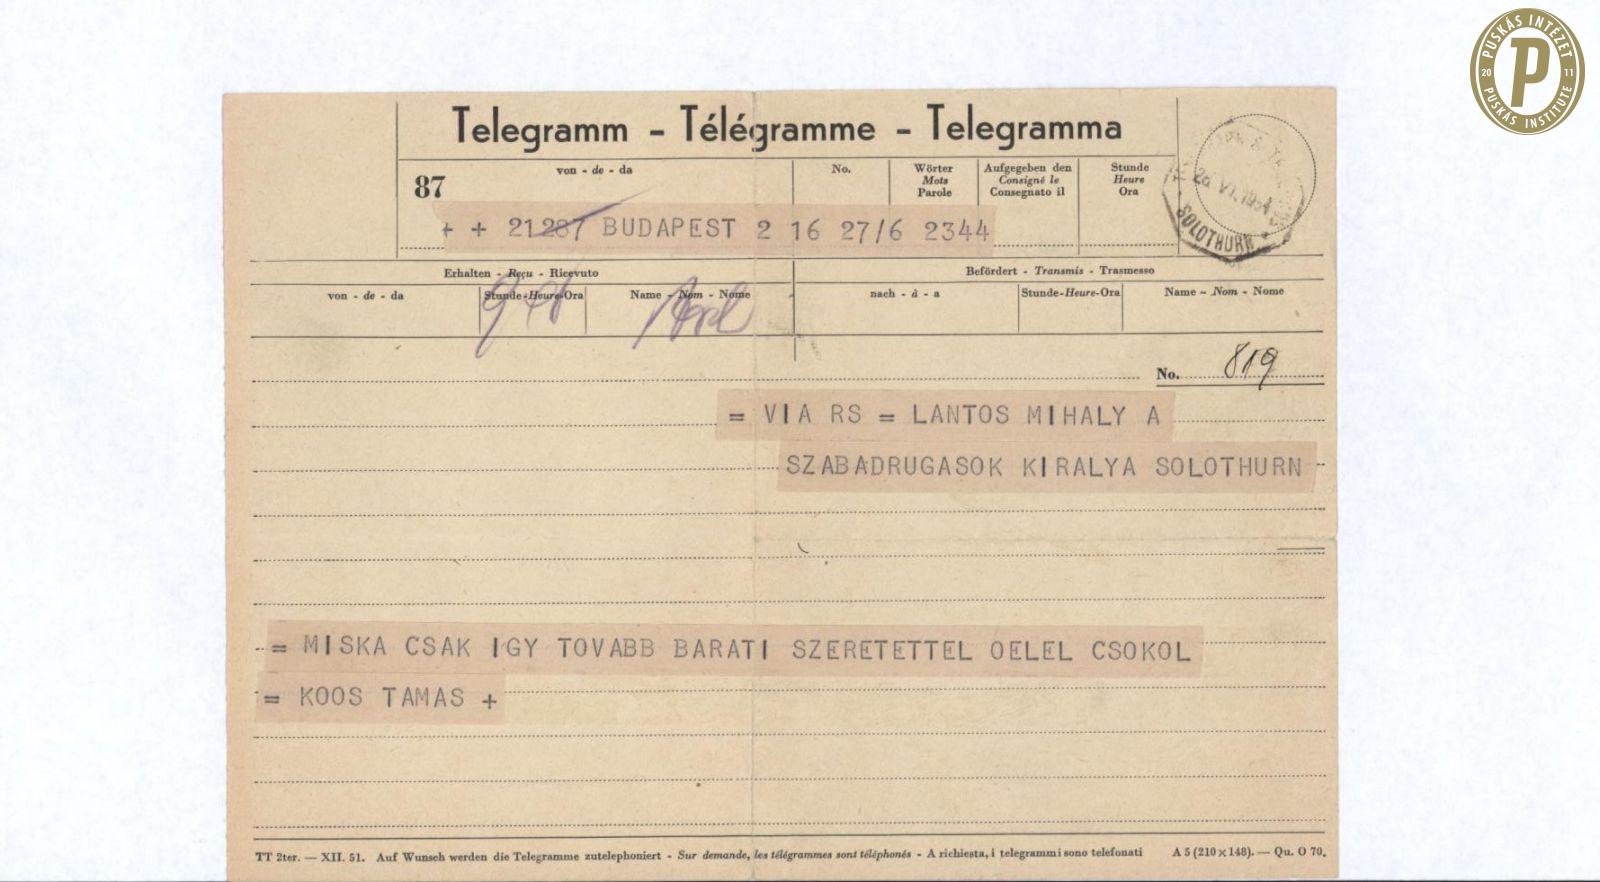 PUSKÁS INTÉZET
20 P 11
PUSKÁS INSTITUTE
Telegramm - Télégramme - Telegramma
87
von - de - da
No.
Wörter
Mots
Parole
Aufgegeben den
Consigné le
Consegnato il
Stunde
Heure
Ora
VI. 1954
SOLOTHURN
+ + 21287 BUDAPEST 2 16 27/6 2344
Erhalten - Reçu - Ricevuto
Befördert - Transmis - Trasmesso
von - de - da
Stunde-Heure-Ora
Name - Nom - Nome
nach - à - a
Stunde-Heure-Ora
Name - Nom - Nome
No. 819
= VIA RS = LANTOS MIHALY A
SZABADRUGASOK KIRALYA SOLOTHURN
= MISKA CSAK IGY TOVABB BARATI SZERETETTEL OELEL CSOKOL
= KOOS TAMAS +
TT 2ter. — XII. 51. Auf Wunsch werden die Telegramme zutelephoniert - Sur demande, les télégrammes sont téléphonés - A richiesta, i telegrammi sono telefonati A 5 (210 × 148). — Qu. O 70.